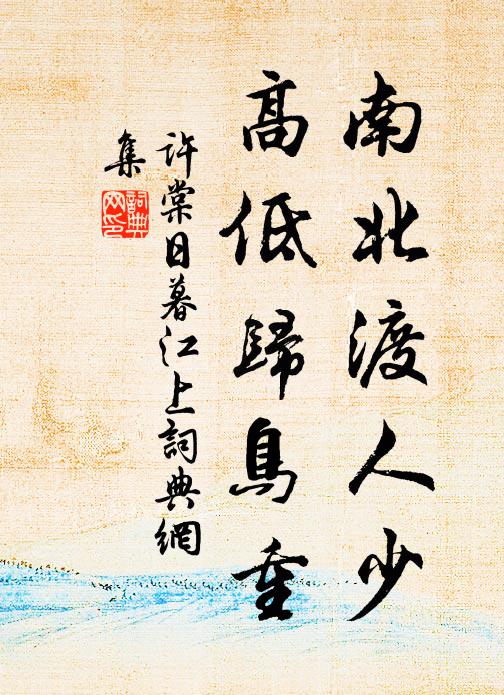 南北渡人少
高低歸鳥重
許棠日暮江上詞典網
集
詞典
网印